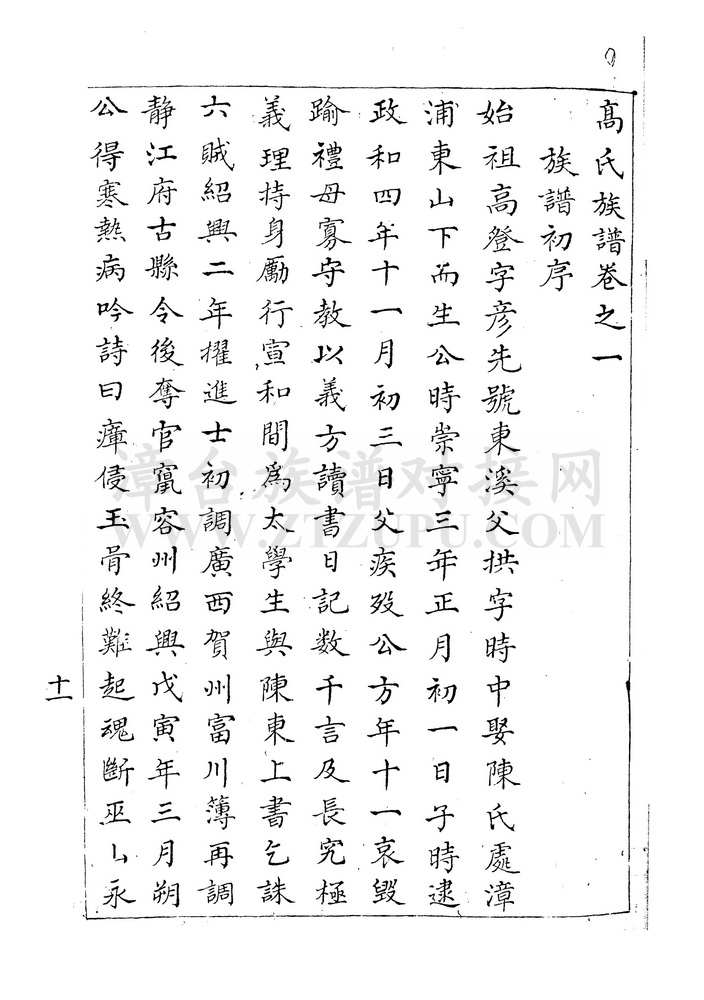 高氏族譜卷之一
族譜初序
始祖高登字彦先號東溪父拱字時中娶陳氏處漳
浦東山下而生公時崇寧三年正月初一日子時逮
政和四年十一月初三日父疾歿公方年十一哀毀
踰禮母寡守教以義方讀書日記数千言及長究極
義理持身勵行宣和間爲太學生與陳東上書乞誅
六賊紹興二年擢進士初調廣西賀州富川簿再調
靜江府古縣令後奪官竄容州紹興戊寅年三月朔
公得寒熱病吟詩曰瘴侵玉骨終難起魂斷巫山永
十一
漳台族谱对接网
WWW.ZTZUPU.COM